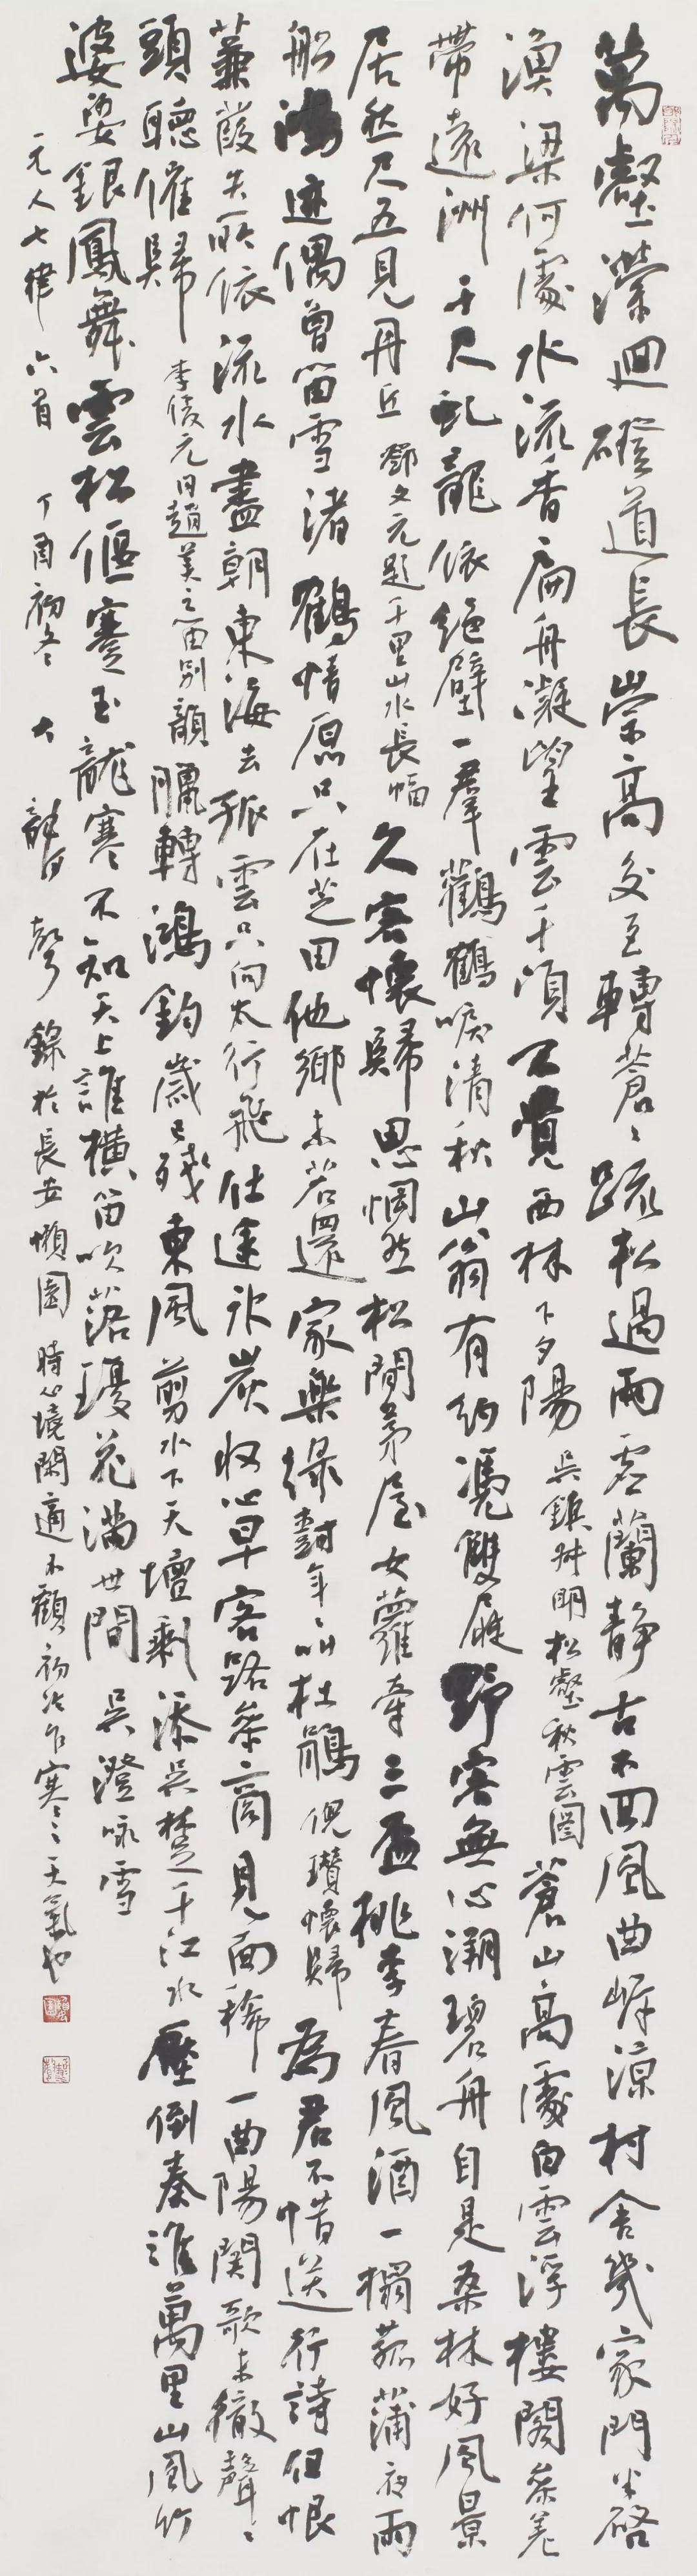 萬壑瀠迴磴道長崇高爻互轉蒼蒼疏松過雨虛蘭靜古木回風曲岸涼村舍幾家門半啓
漁梁何處水流香扁舟凝望雲千頃不覺西林下夕陽吳鎮舜明松壑秋雲圖蒼山高處白雲浮樓閣參差
帶遠洲千尺虬龍依絕壁一羣鸛鶴唳清秋山翁有約馮雙屐野客無心溯碧舟自是桑林好風景
居然尺五見丹丘鄧文元題千里山水長幅久客懷歸思惘然松間茅屋女蘿牽三盃桃李春風酒一榻菰蒲夜雨
船鴻迹偶曾留雪渚鶴情原只在芝田他鄉未若還家樂綠樹年年叫杜鵑倪瓚懷歸為君不惜送行詩但恨
蒹葭失所依流水盡朝東海去孤雲只向太行飛仕途冰炭收心早客路參商見面稀一曲陽關歌未徹聲聲
頭聽催歸李俊元日趙美之由別韻臘轉鴻鈞歲已殘東風剪水下天壇剩添吳楚千江水壓倒秦淮萬里山風竹
婆娑銀鳳舞雲松偃蹇玉龍寒不知天上誰橫笛吹落瓊花滿世間吳澄咏雪
元人七律六首丁酉初冬大 聲錄於長安懶園時心境閑適不顧初冷乍寒寒天氣也